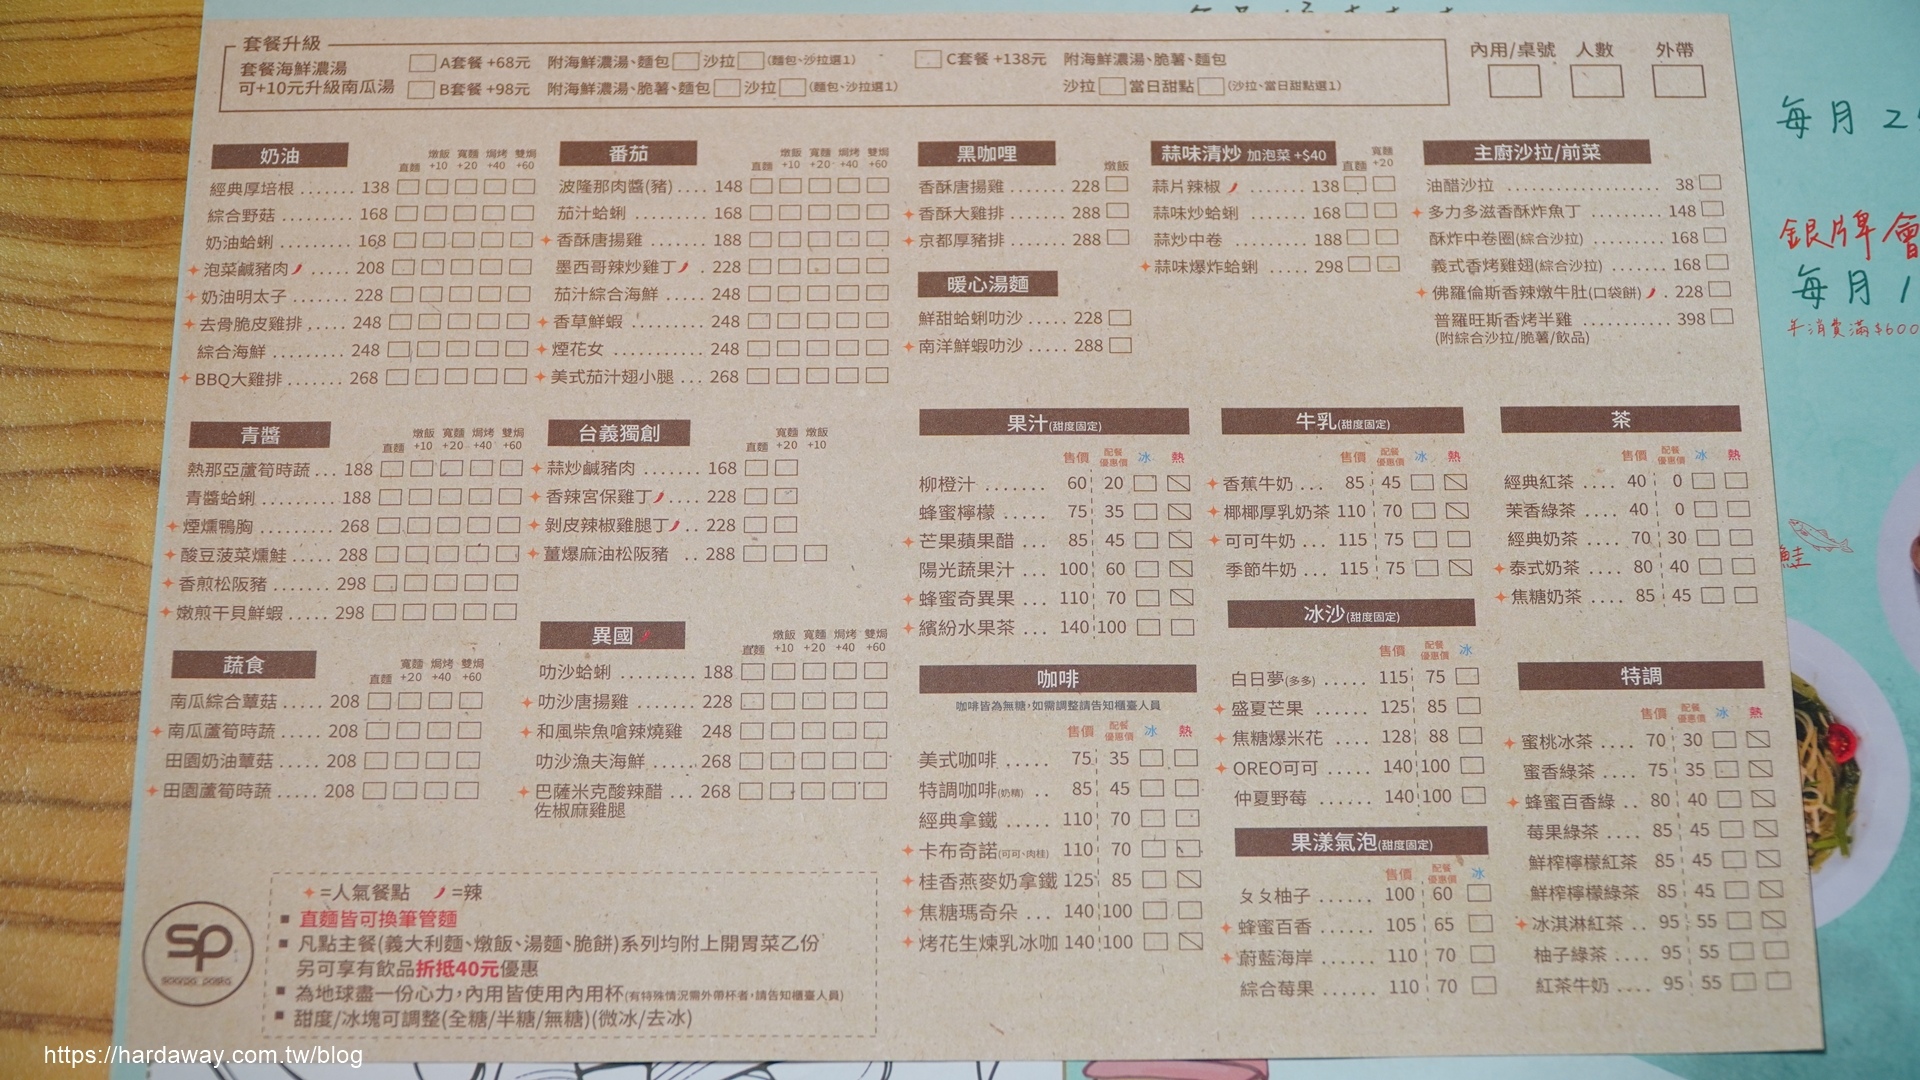 套餐升級
套餐海鮮濃湯
可+10元升級南瓜湯
A套餐 +68元 附海鮮濃湯、麵包 沙拉 (麵包、沙拉選1)
B套餐 +98元 附海鮮濃湯、脆薯、麵包 沙拉 (麵包、沙拉選1)
C套餐 +138元 附海鮮濃湯、脆薯、麵包
沙拉 當日甜點 (沙拉、當日甜點選1)
內用/桌號 人數 外帶
奶油 直麵 燉飯+10 寬麵+20 焗烤+40 雙焗+60
經典厚培根 ....... 138
綜合野菇 ......... 168
奶油蛤蜊 ......... 168
泡菜鹹豬肉 ..... 208
奶油明太子 ....... 228
去骨脆皮雞排 ..... 248
綜合海鮮 ......... 248
BBQ大雞排 ....... 268
番茄 直麵 燉飯+10 寬麵+20 焗烤+40 雙焗+60
波隆那肉醬(豬) .... 148
茄汁蛤蜊 ........ 168
香酥唐揚雞 ....... 188
墨西哥辣炒雞丁 . 228
茄汁綜合海鮮 ..... 248
香草鮮蝦 ......... 248
煙花女 ........... 248
美式茄汁翅小腿 ... 268
黑咖哩 燉飯
香酥唐揚雞 ....... 228
香酥大雞排 ....... 288
京都厚豬排 ....... 288
暖心湯麵
鮮甜蛤蜊叻沙 ..... 228
南洋鮮蝦叻沙 ..... 288
蒜味清炒 加泡菜 +$40 直麵 寬麵+20
蒜片辣椒 ....... 138
蒜味炒蛤蜊 ...... 168
蒜炒中卷 ........ 188
蒜味爆炸蛤蜊 ..... 298
主廚沙拉/前菜
油醋沙拉 .................. 38
多力多滋香酥炸魚丁 ......... 148
酥炸中卷圈(綜合沙拉) ........ 168
義式香烤雞翅(綜合沙拉) ...... 168
佛羅倫斯香辣燉牛肚(口袋餅) . 228
普羅旺斯香烤半雞 .......... 398
(附綜合沙拉/脆薯/飲品)
青醬 直麵 燉飯+10 寬麵+20 焗烤+40 雙焗+60
熱那亞蘆筍時蔬 ... 188
青醬蛤蜊 ......... 188
煙燻鴨胸 ......... 268
酸豆菠菜燻鮭 ..... 288
香煎松阪豬 ....... 298
嫩煎干貝鮮蝦 ..... 298
台義獨創 直麵 寬麵+20 燉飯+10
蒜炒鹹豬肉 ....... 168
香辣宮保雞丁 .... 228
剝皮辣椒雞腿丁 .. 228
薑爆麻油松阪豬 .. 288
蔬食 直麵 寬麵+20 焗烤+40 雙焗+60
南瓜綜合蕈菇 ..... 208
南瓜蘆筍時蔬 ..... 208
田園奶油蕈菇 ..... 208
田園蘆筍時蔬 ..... 208
異國 直麵 燉飯+10 寬麵+20 焗烤+40 雙焗+60
叻沙蛤蜊 ......... 188
叻沙唐揚雞 ....... 228
和風柴魚嗆辣燒雞 248
叻沙漁夫海鮮 ..... 268
巴薩米克酸辣醋 ... 268
佐椒麻雞腿
果汁(甜度固定)
售價 配餐優惠價 冰 熱
柳橙汁 ....... 60 20
蜂蜜檸檬 ..... 75 35
芒果蘋果醋 ... 85 45
陽光蔬果汁 ... 100 60
蜂蜜奇異果 ... 110 70
繽紛水果茶 ... 140 100
咖啡
咖啡皆為無糖,如需調整請告知櫃臺人員
售價 配餐優惠價 冰 熱
美式咖啡 ..... 75 35
特調咖啡(奶精) .. 85 45
經典拿鐵 ..... 110 70
卡布奇諾(可可、肉桂) 110 70
桂香燕麥奶拿鐵 125 85
焦糖瑪奇朵 ... 140 100
烤花生煉乳冰咖 140 100
牛乳(甜度固定)
售價 配餐優惠價 冰 熱
香蕉牛奶 ... 85 45
椰椰厚乳奶茶 110 70
可可牛奶 ... 115 75
季節牛奶 ... 115 75
冰沙(甜度固定)
售價 配餐優惠價 冰
白日夢(多多) ..... 115 75
盛夏芒果 ...... 125 85
焦糖爆米花 .... 128 88
OREO可可 ..... 140 100
仲夏野莓 ...... 140 100
果漾氣泡(甜度固定)
售價 配餐優惠價 冰
ㄆㄆ柚子 ...... 100 60
蜂蜜百香 ...... 105 65
蔚藍海岸 ...... 110 70
綜合莓果 ...... 110 70
茶
售價 配餐優惠價 冰 熱
經典紅茶 .... 40 0
茉香綠茶 .... 40 0
經典奶茶 .... 70 30
泰式奶茶 .... 80 40
焦糖奶茶 .... 85 45
特調
售價 配餐優惠價 冰 熱
蜜桃冰茶 .... 70 30
蜜香綠茶 .... 75 35
蜂蜜百香綠 .. 80 40
莓果綠茶 .... 85 45
鮮榨檸檬紅茶 85 45
鮮榨檸檬綠茶 85 45
冰淇淋紅茶 .. 95 55
柚子綠茶 .... 95 55
紅茶牛奶 .... 95 55
=人氣餐點 =辣
直麵皆可換筆管麵
凡點主餐(義大利麵、燉飯、湯麵、脆餅)系列均附上開胃菜乙份
另可享有飲品折抵40元優惠
為地球盡一份心力,內用皆使用內用杯(有特殊情況需外帶杯者,請告知櫃臺人員)
甜度/冰塊可調整(全糖/半糖/無糖)(微冰/去冰)
sp
每月 2
銀牌會
每月 1
年消費滿$600
鮭
https://hardaway.com.tw/blog